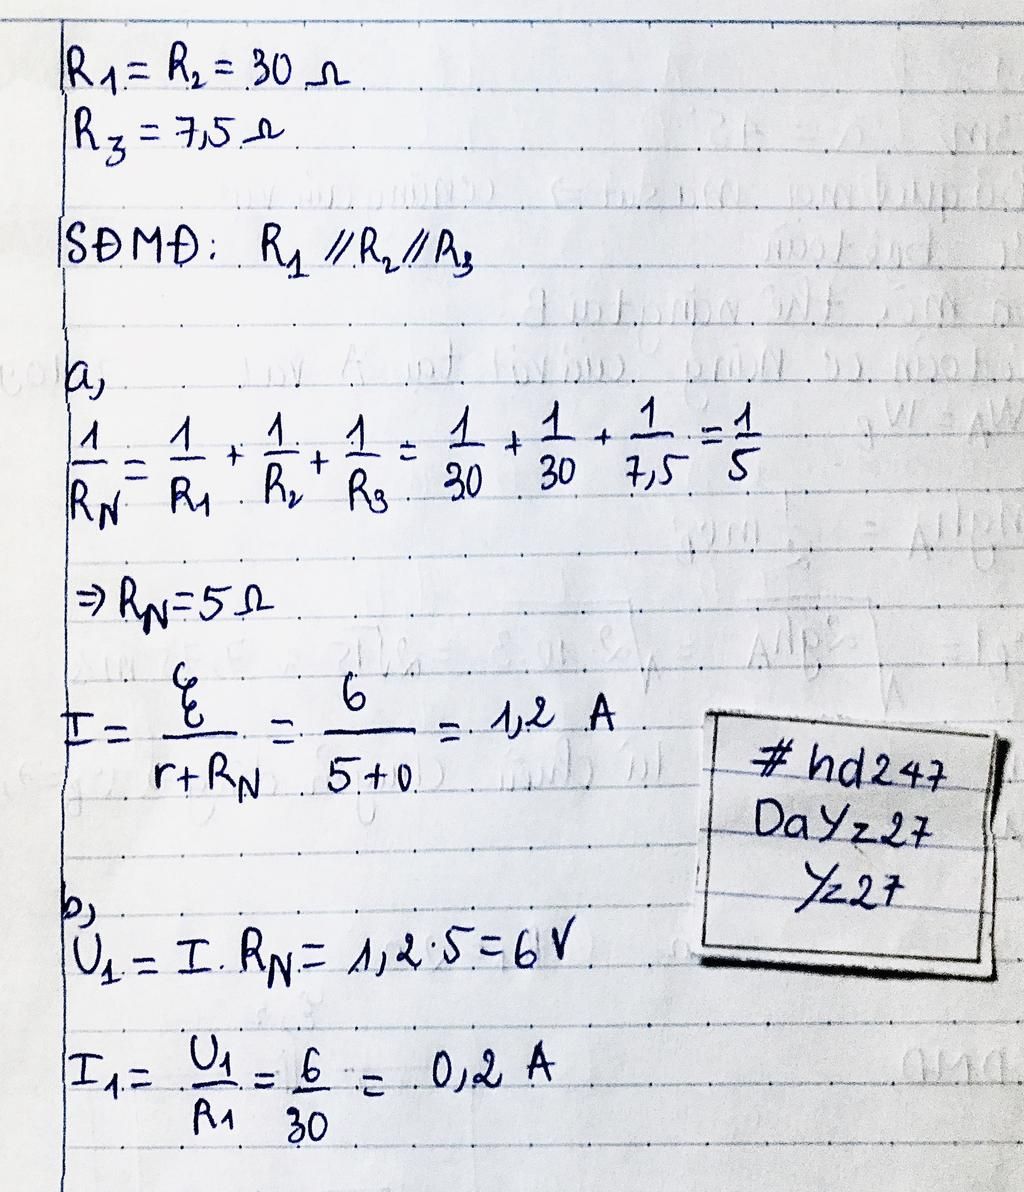 R1 = R2 = 30 Ω
R3 = 7,5 Ω
SĐMĐ: R1 // R2 // R3
a,
1/RN = 1/R1 + 1/R2 + 1/R3 = 1/30 + 1/30 + 1/7,5 = 1/5
⇒ RN = 5 Ω
I = ξ/(r + RN) = 6/(5 + 0) = 1,2 A
# hd247
DaYz27
Yz27
b,
U1 = I . RN = 1,2 . 5 = 6 V
I1 = U1/R1 = 6/30 = 0,2 A